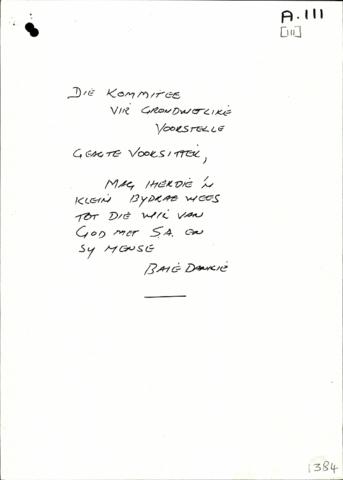 A.111
[111]
DIE KOMMITEE
VIR GRONDWETLIKE
VOORSTELLE
GEAGTE VOORSITTER,
MAG HIERDIE 'N
KLEIN BYDRAE WEES
TOT DIE WIL VAN
GOD MET S.A. EN
SY MENSE
BAIE DANKIE
1384